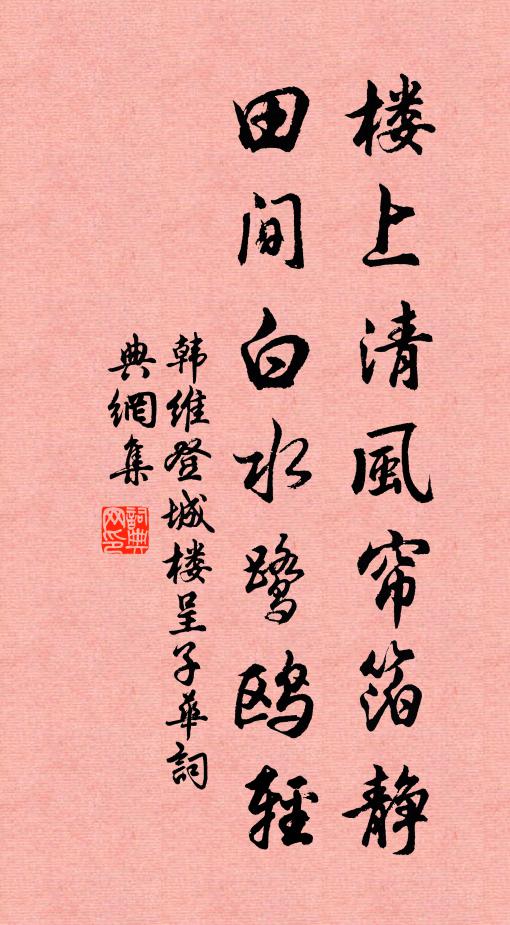 楼上清風帘箔静
田间白水鹭鸥轻
韩维登城楼呈子華詞
典網集
詞典网印